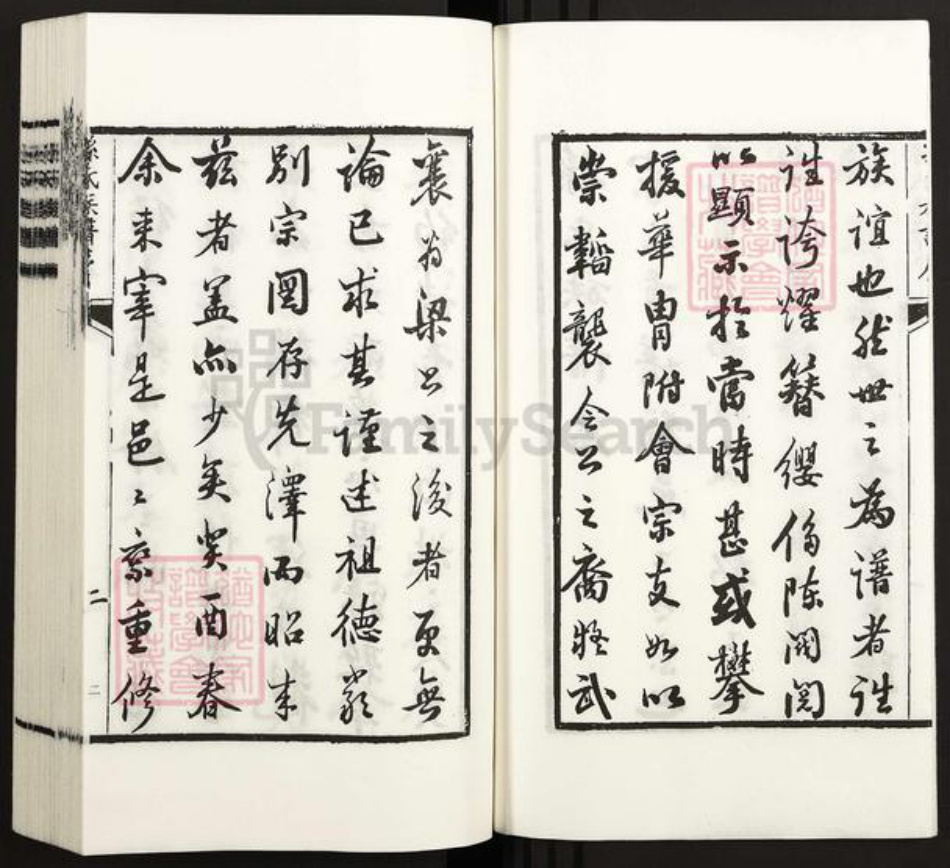 族誼也然世之為譜者往
往誇耀簪纓侈陳閥閱
以顯示於當時甚或攀
援華胄附會宗支如以
崇韜襲令公之裔将武
襄為梁公之後者更無
論已求其謹述祖德嚴
別宗圖存先澤而昭来
兹者盖亦少矣癸酉春
余来宰是邑〻
重修
二
二
FamilySearch